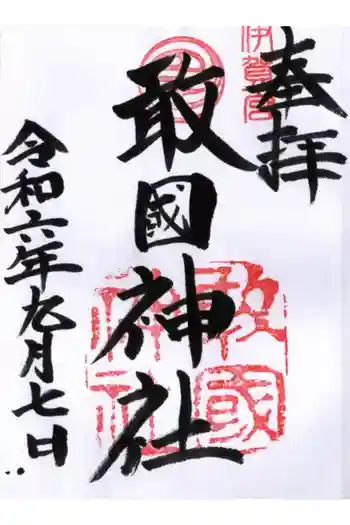 奉拝
伊賀一宮
敢國神社
敢國神社
令和六年九月七日